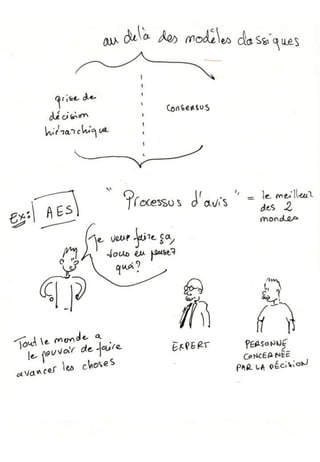 au delà des modèles classiques
prise de
décision
hiérarchique
Consensus
"Processus d'avis" = le meilleur
des 2
mondes
Ex: AES
Je veux faire ça,
vous en pensez
quoi?
Tout le monde a
le pouvoir de faire
avancer les choses
EXPERT
PERSONNE
CONCERNÉE
PAR LA DÉCISION